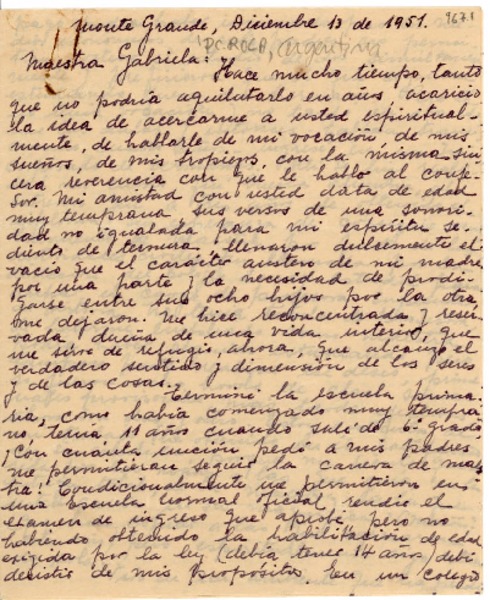 Monte Grande, Diciembre 13 de 1951.
967.1
PC. ROCA, Argentina
Maestra Gabriela:
Hace mucho tiempo, tanto
que no podría aquilatarlo en años acaricio
la idea de acercarme a usted espiritual-
mente, de hablarle de mi vocación, de mis
sueños, de mis tropiezos, con la misma sin
cera reverencia con que le hablo al confe-
sor. Mi amistad con usted data de edad
muy temprana, sus versos de una sonori-
dad no igualada para mi espíritu se-
diento de ternura, llenaron dulsemente el
vacío que el carácter austero de mi madre
por una parte y la necesidad de prodi-
garse entre sus ocho hijos por la otra
me dejaron. Me hice reconcentrada y reser-
vada, dueña de una vida interior, que
me sirve de refugio, ahora, que alcanzo el
verdadero sentido y dimensión de los seres
y de las cosas.
Terminé la escuela prima-
ria, como había comenzado muy tempra
no, tenía 11 años cuando salí de 6º grado
¡Con cuánta unción pedí a mis padres
me permitieran seguir la carrera de maes-
tra! Condicionalmente me permitieron en
una Escuela Normal oficial rendir el
examen de ingreso que aprobé, pero no
habiendo obtenido la habilitación de edad
exigida por la ley (debía tener 14 años) debí
desistir de mis propósitos. En un colegio